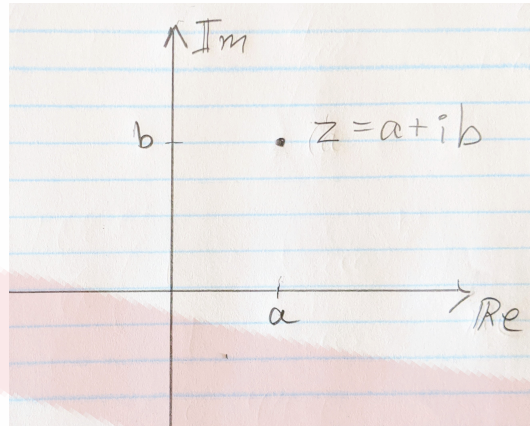 Im
b
z = a + ib
a
Re